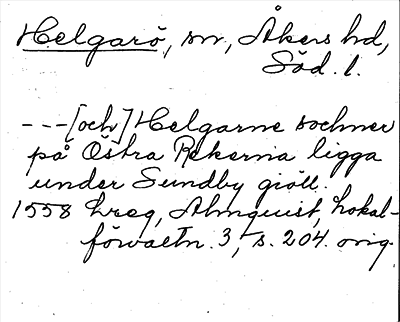 Helgarö, sn, Åkers hd,
Söd. l.
---[och] Helgarne sochner
på Östra Rekerna ligga
under Sundby giäll.
1558 hreg, Almquist, Lokal-
förvaltn. 3, s. 204. orig.